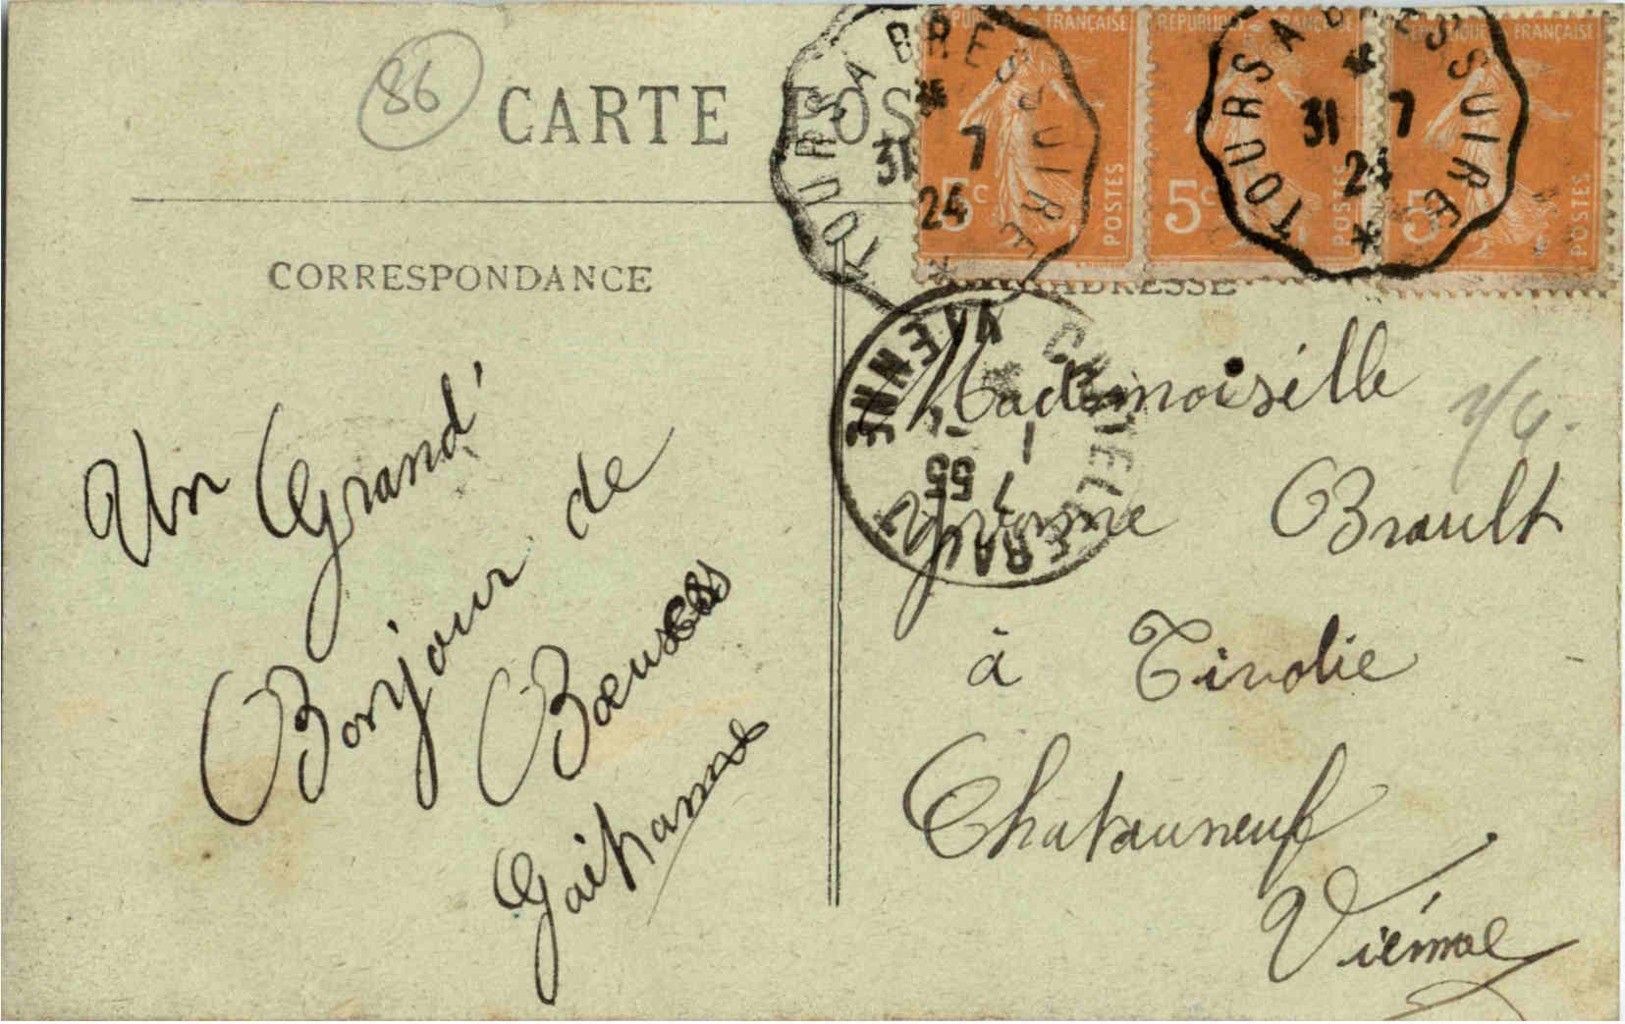 86
CARTE POS
CORRESPONDANCE
ADRESSE
RÉPUBLIQUE FRANÇAISE
5c POSTES
RÉPUBLIQUE FRANÇAISE
5c POSTES
RÉPUBLIQUE FRANÇAISE
5 POSTES
TOURS A BRESSUIRE
31 7
24
TOURS A BRESSUIRE
31 7
24
CHATELLERAULT
VIENNE
Un Grand
Bonjour de
Mademoiselle
Brault
à Tivolie
Chatauneuf
Vienne